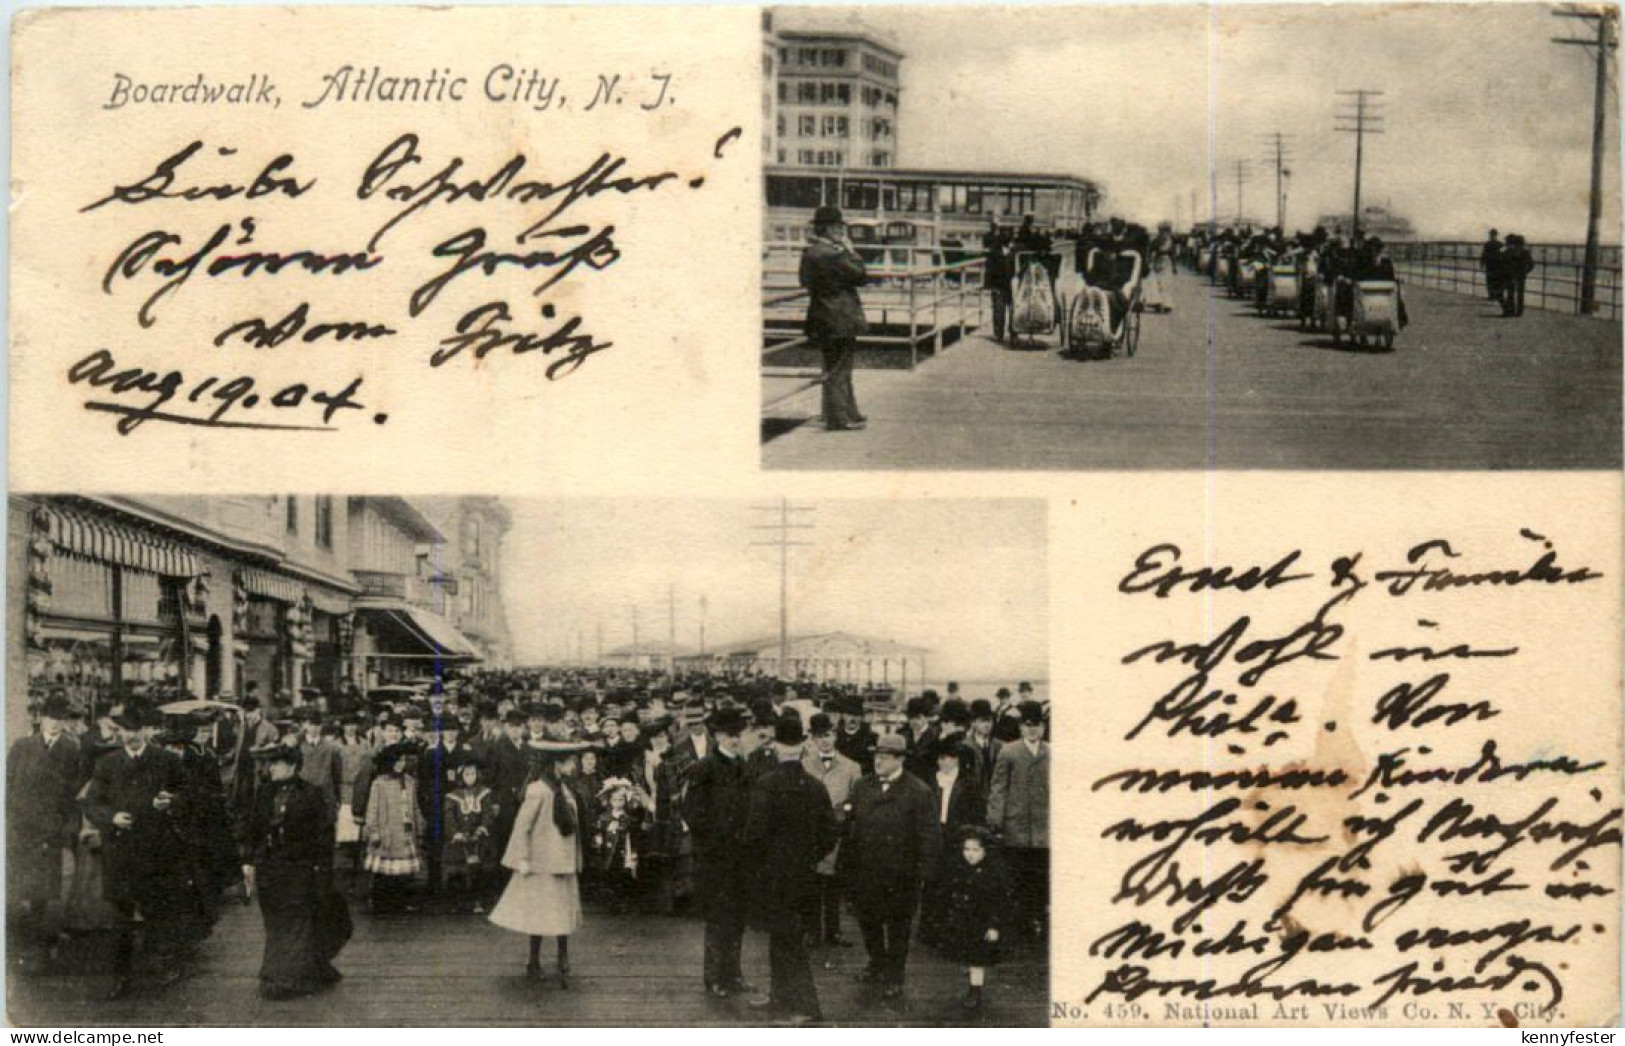 Boardwalk, Atlantic City, N. J.
Liebe Schwester!
Schönen Gruß
Vom Fritz
Aug 19. 04.
Ernst & Familie
wohl in
Phila. Von
meinen Kindern
erhielt ich Nachricht
daß sie gut in
Michigan ange-
kommen sind.
No. 459. National Art Views Co. N. Y. City.
kennyfester